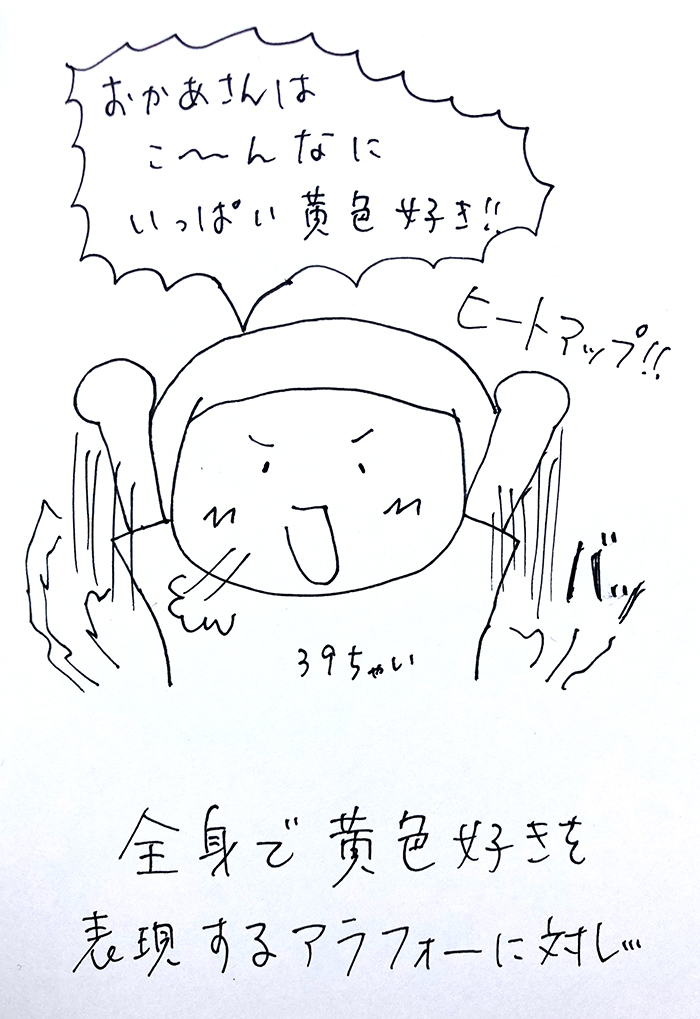 おかあさんは
こ〜んなに
いっぱい黄色好き!!
ヒートアップ!!
バッ
39ちゃい
全身で黄色好きを
表現するアラフォーに対し…